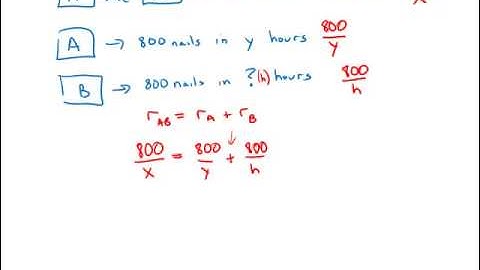 A
x
A → 800 nails in y hours 800/y
B → 800 nails in ? (h) hours 800/h
r_AB = r_A + r_B
800/x = 800/y + 800/h